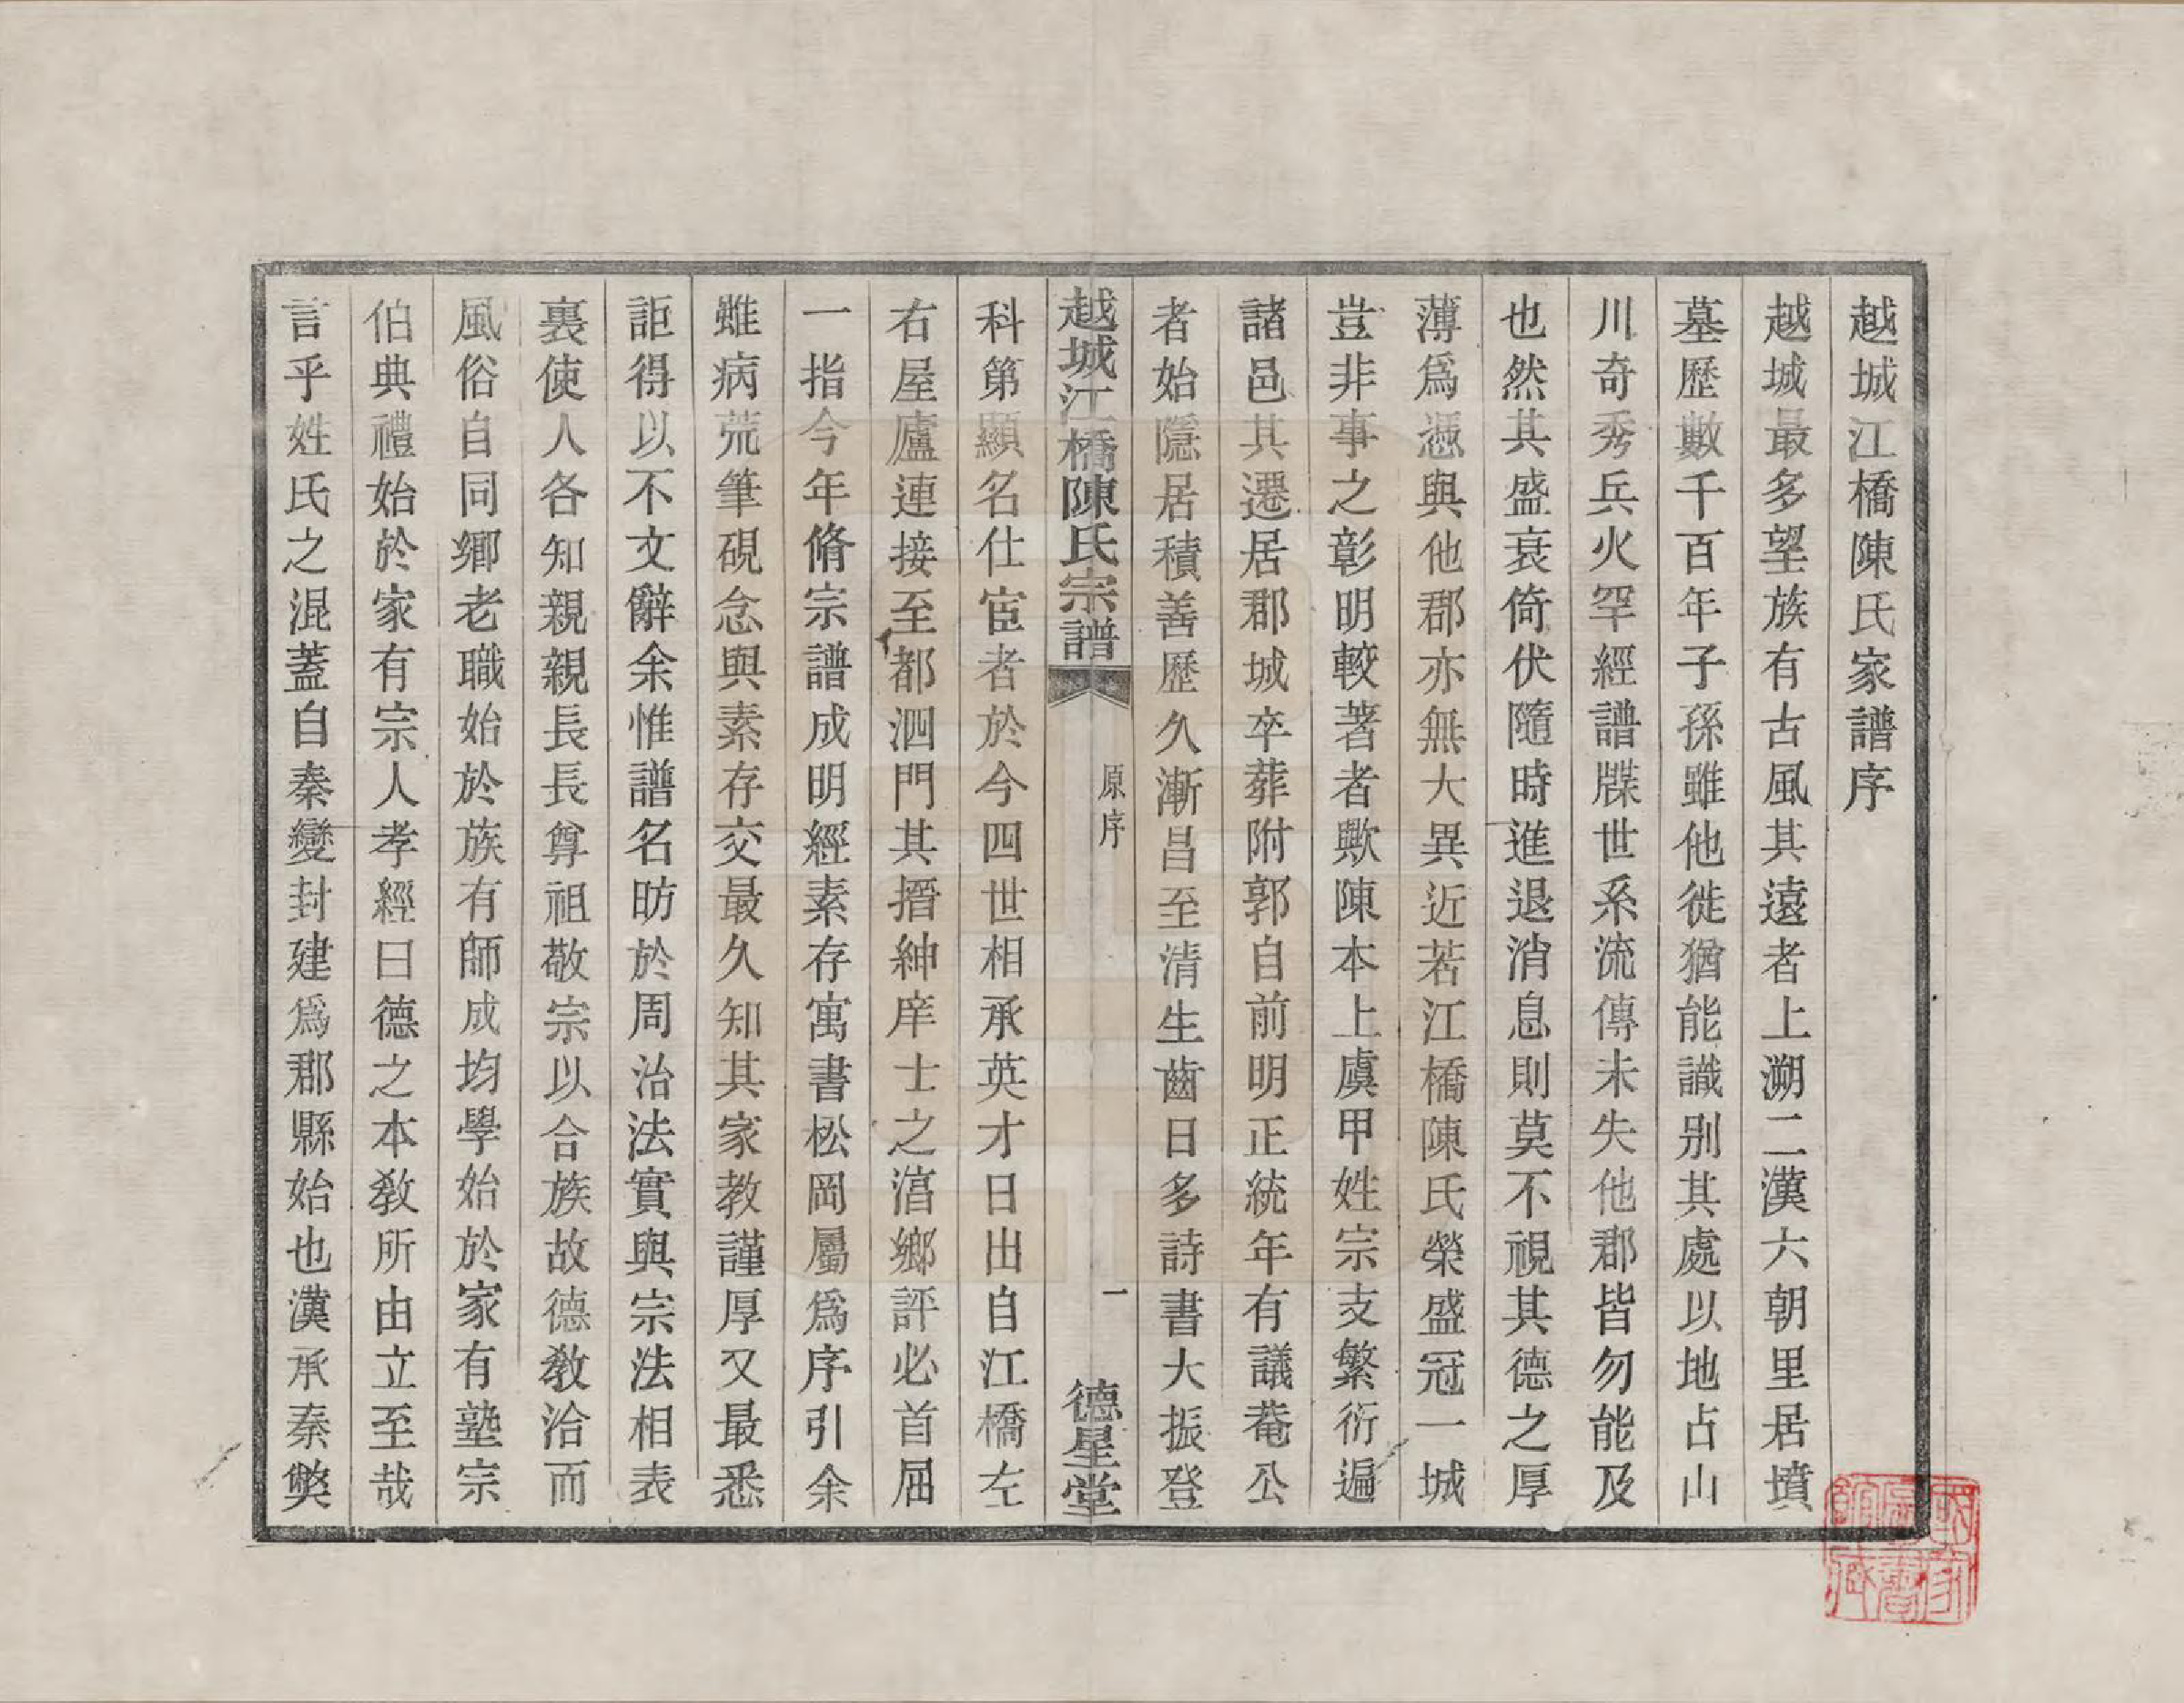 越城江橋陳氏家譜序
越城最多望族有古風其遠者上溯二漢六朝里居墳
墓歷數千百年子孫雖他徙猶能識别其處以地占山
川奇秀兵火罕經譜牒世系流傳未失他郡皆勿能及
也然其盛衰倚伏隨時進退消息則莫不視其德之厚
薄爲憑與他郡亦無大異近若江橋陳氏榮盛冠一城
豈非事之彰明較著者歟陳本上虞甲姓宗支繁衍遍
諸邑其遷居郡城卒葬附郭自前明正統年有議菴公
者始隱居積善歷久漸昌至清生齒日多詩書大振登
越城江橋陳氏宗譜
原序
一
德星堂
科第顯名仕宦者於今四世相承英才日出自江橋左
右屋廬連接至都泗門其搢紳庠士之㵎鄉評必首屈
一指今年脩宗譜成明經素存寓書松岡屬爲序引余
雖病荒筆硯念與素存交最久知其家教謹厚又最悉
詎得以不文辭余惟譜名昉於周治法實與宗法相表
裏使人各知親親長長尊祖敬宗以合族故德教洽而
風俗自同鄉老職始於族有師成均學始於家有塾宗
伯典禮始於家有宗人孝經曰德之本教所由立至哉
言乎姓氏之混蓋自秦變封建爲郡縣始也漢承秦獘